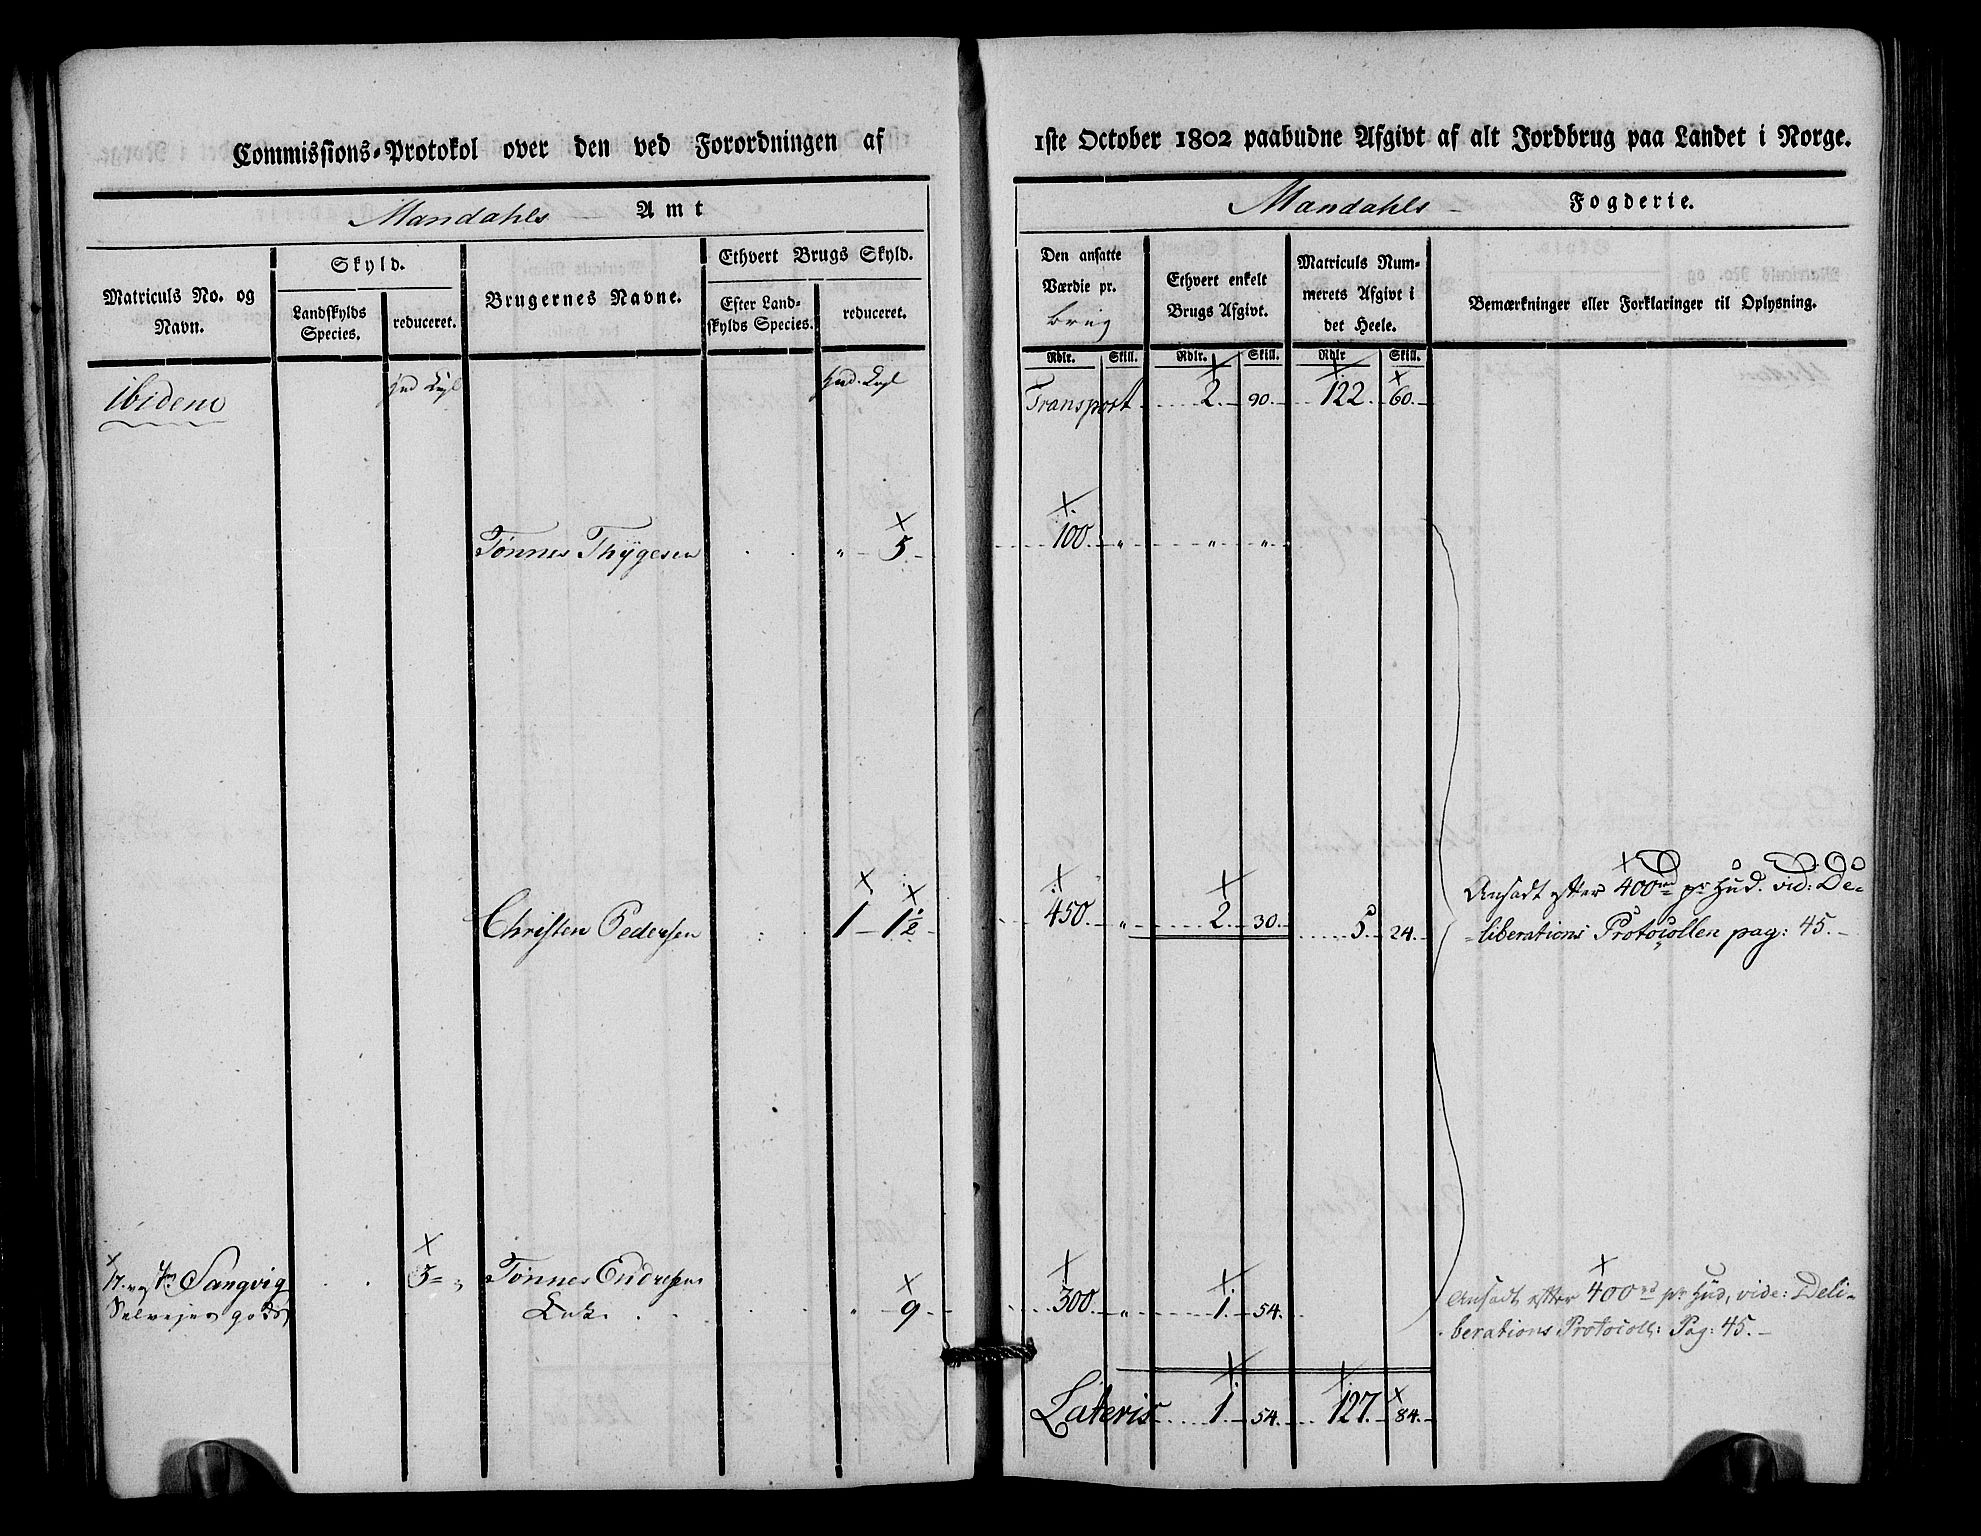 Commissions-Protokol over den ved Forordningen af
Mandahls Amt
Matriculs No. og Navn.
Skyld.
Landskylds Species.
reduceret.
Brugernes Navne.
Ethvert Brugs Skyld.
Efter Landskylds Species.
reduceret.
ibidem
Hud Kngl
Hud. Kngl
Tønnes Thÿgesen " 5.
Christen Pedersen 1 1½
Sangvig 3 " Tønnes Endresen
Selvejer gods Enke " 9
1ste October 1802 paabudne Afgivt af alt Jordbrug paa Landet i Norge.
Mandahls Fogderie.
Den ansatte Værdie pr.
brug
Ethvert enkelt Brugs Afgivt.
Matriculs Nummerets Afgivt i det Heele.
Bemærkninger eller Forklaringer til Oplysning.
Rdlr. Skill. Rdlr. Skill. Rdlr Skill.
Transport 2. 90. 122. 60.
100. " " "
450. " 2. 30. 5. 24.
Ansadt efter 400rd pr Hud. vid: De=
=liberations Protocollen pag: 45.
300. " 1. 54.
Ansadt efter 400rd pr Hud, vide: Deli=
berations Protocoll: Pag: 45.
Lateris 1. 54. 127. 84.